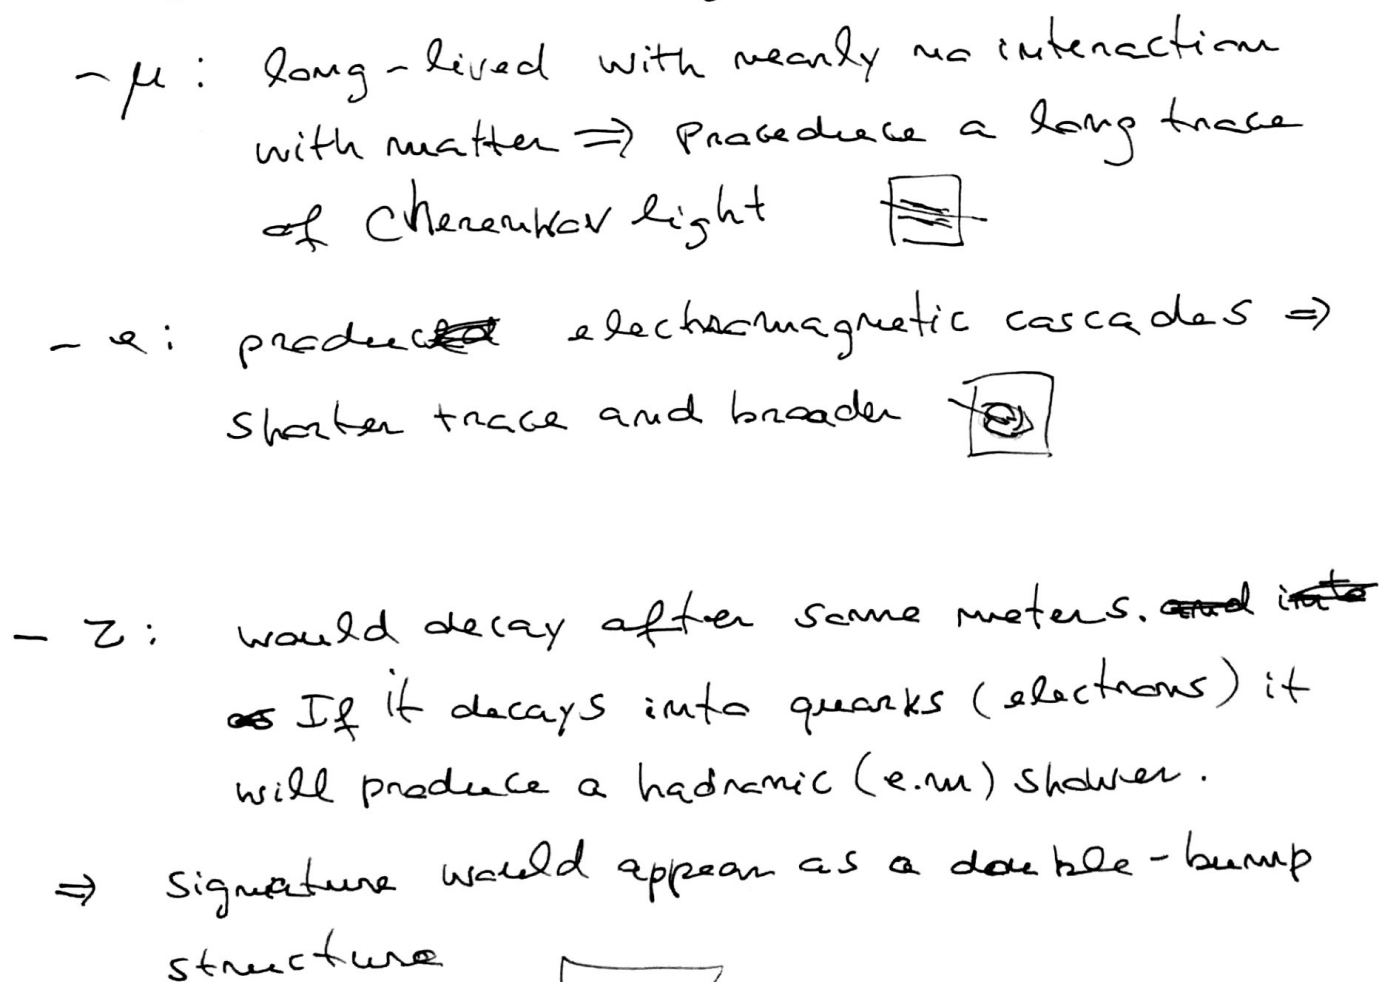 - μ: long-lived with nearly no interaction
with matter ⇒ Proceduce a long trace
of Cherenkov light
- e: produce electromagnetic cascades ⇒
shorter trace and broader
- τ: would decay after some meters. and into
If it decays into quarks (electrons) it
will produce a hadronic (e.m) shower.
⇒ signature would appear as a double-bump
structure